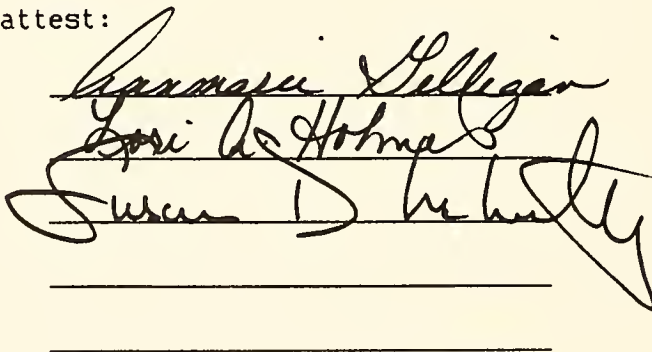 attest:
Annmarie Gilligan
Lori A. Holmes
Susan D